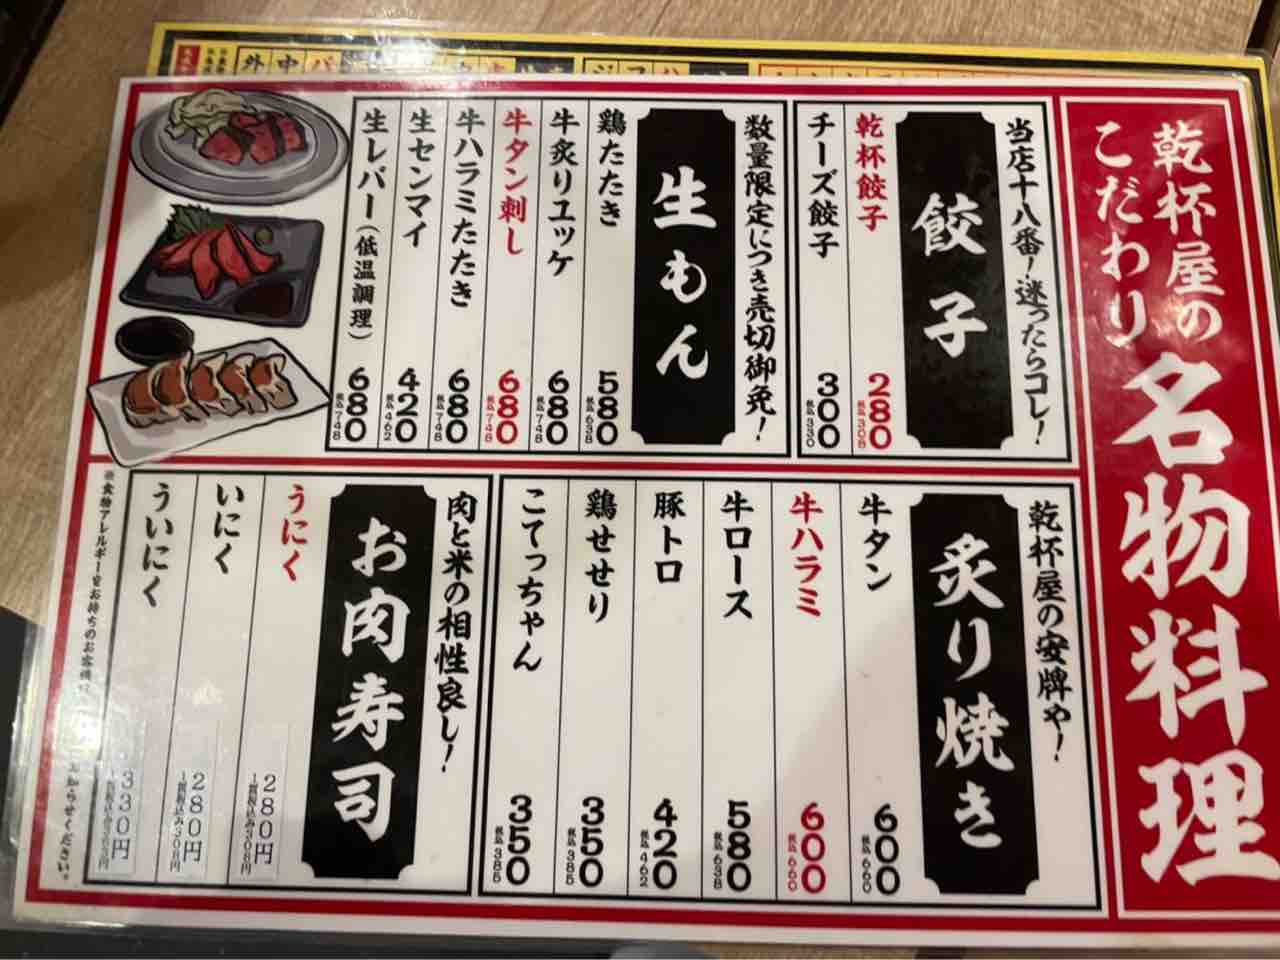 乾杯屋の
こだわり
名物料理
当店十八番！迷ったらコレ！
餃子
乾杯餃子 280 税込308
チーズ餃子 300 税込330
数量限定につき売切御免！
生もん
鶏たたき 580 税込638
牛炙りユッケ 680 税込748
牛タン刺し 680 税込748
牛ハラミたたき 680 税込748
生センマイ 420 税込462
生レバー（低温調理） 680 税込748
乾杯屋の安牌や！
炙り焼き
牛タン 600 税込660
牛ハラミ 600 税込660
牛ロース 580 税込638
豚トロ 420 税込462
鶏せせり 350 税込385
こてっちゃん 350 税込385
肉と米の相性良し！
お肉寿司
うにく 280円 1貫税込み308円
いにく 280円 1貫税込み308円
ういにく 330円 1貫税込み363円
※食物アレルギーをお持ちのお客様は お知らせください。
外 中 バ